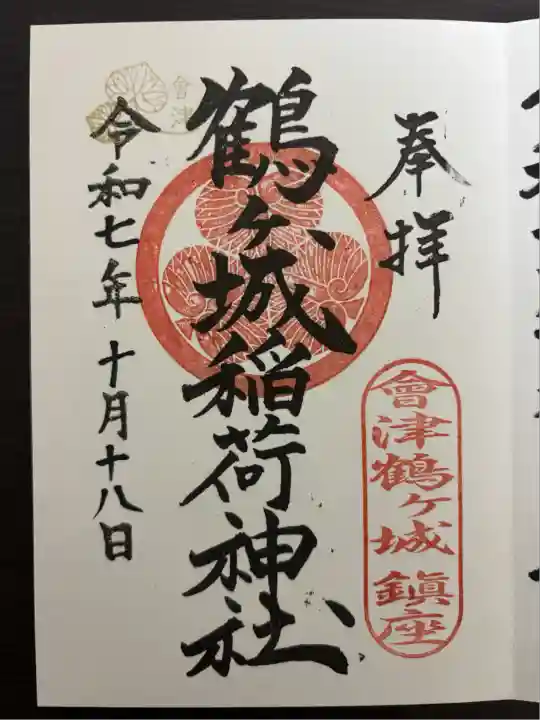 奉拝
會津鶴ヶ城 鎮座
鶴ヶ城稲荷神社
會津
令和七年 十月十八日